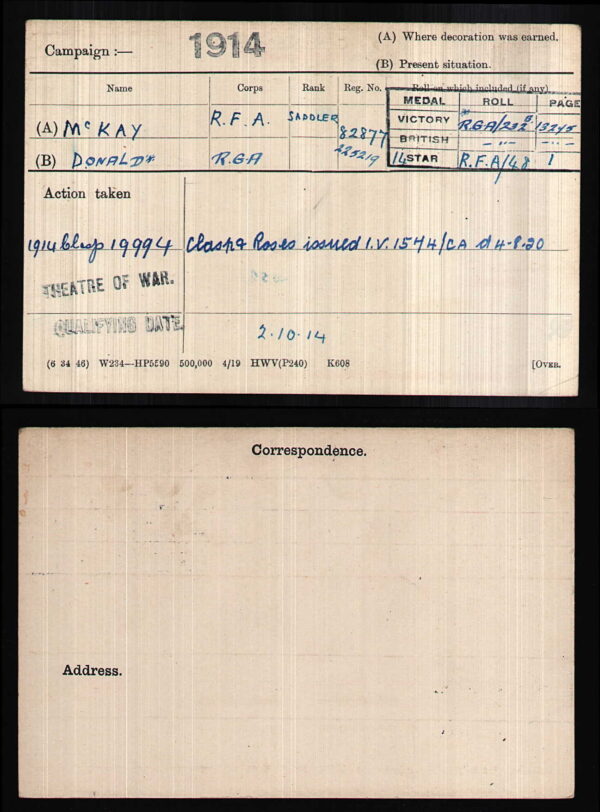 Campaign :— 1914 (A) Where decoration was earned.
(B) Present situation.
Name Corps Rank Reg. No. Roll on which included (if any).
MEDAL ROLL PAGE
(A) McKAY R.F.A. SADDLER 82877 VICTORY RGA/232B 13245
BRITISH —"— —"—
(B) DONALD* R.G.A 225219 14 STAR R.F.A/48 1
Action taken
1914 Clasp 19994 Clasp & Roses issued I.V. 1574/CA d 4-8-20
THEATRE OF WAR.
QUALIFYING DATE. 2.10.14
(6 34 46) W234—HP5590 500,000 4/19 HWV(P240) K608 [OVER.
Correspondence.
Address.